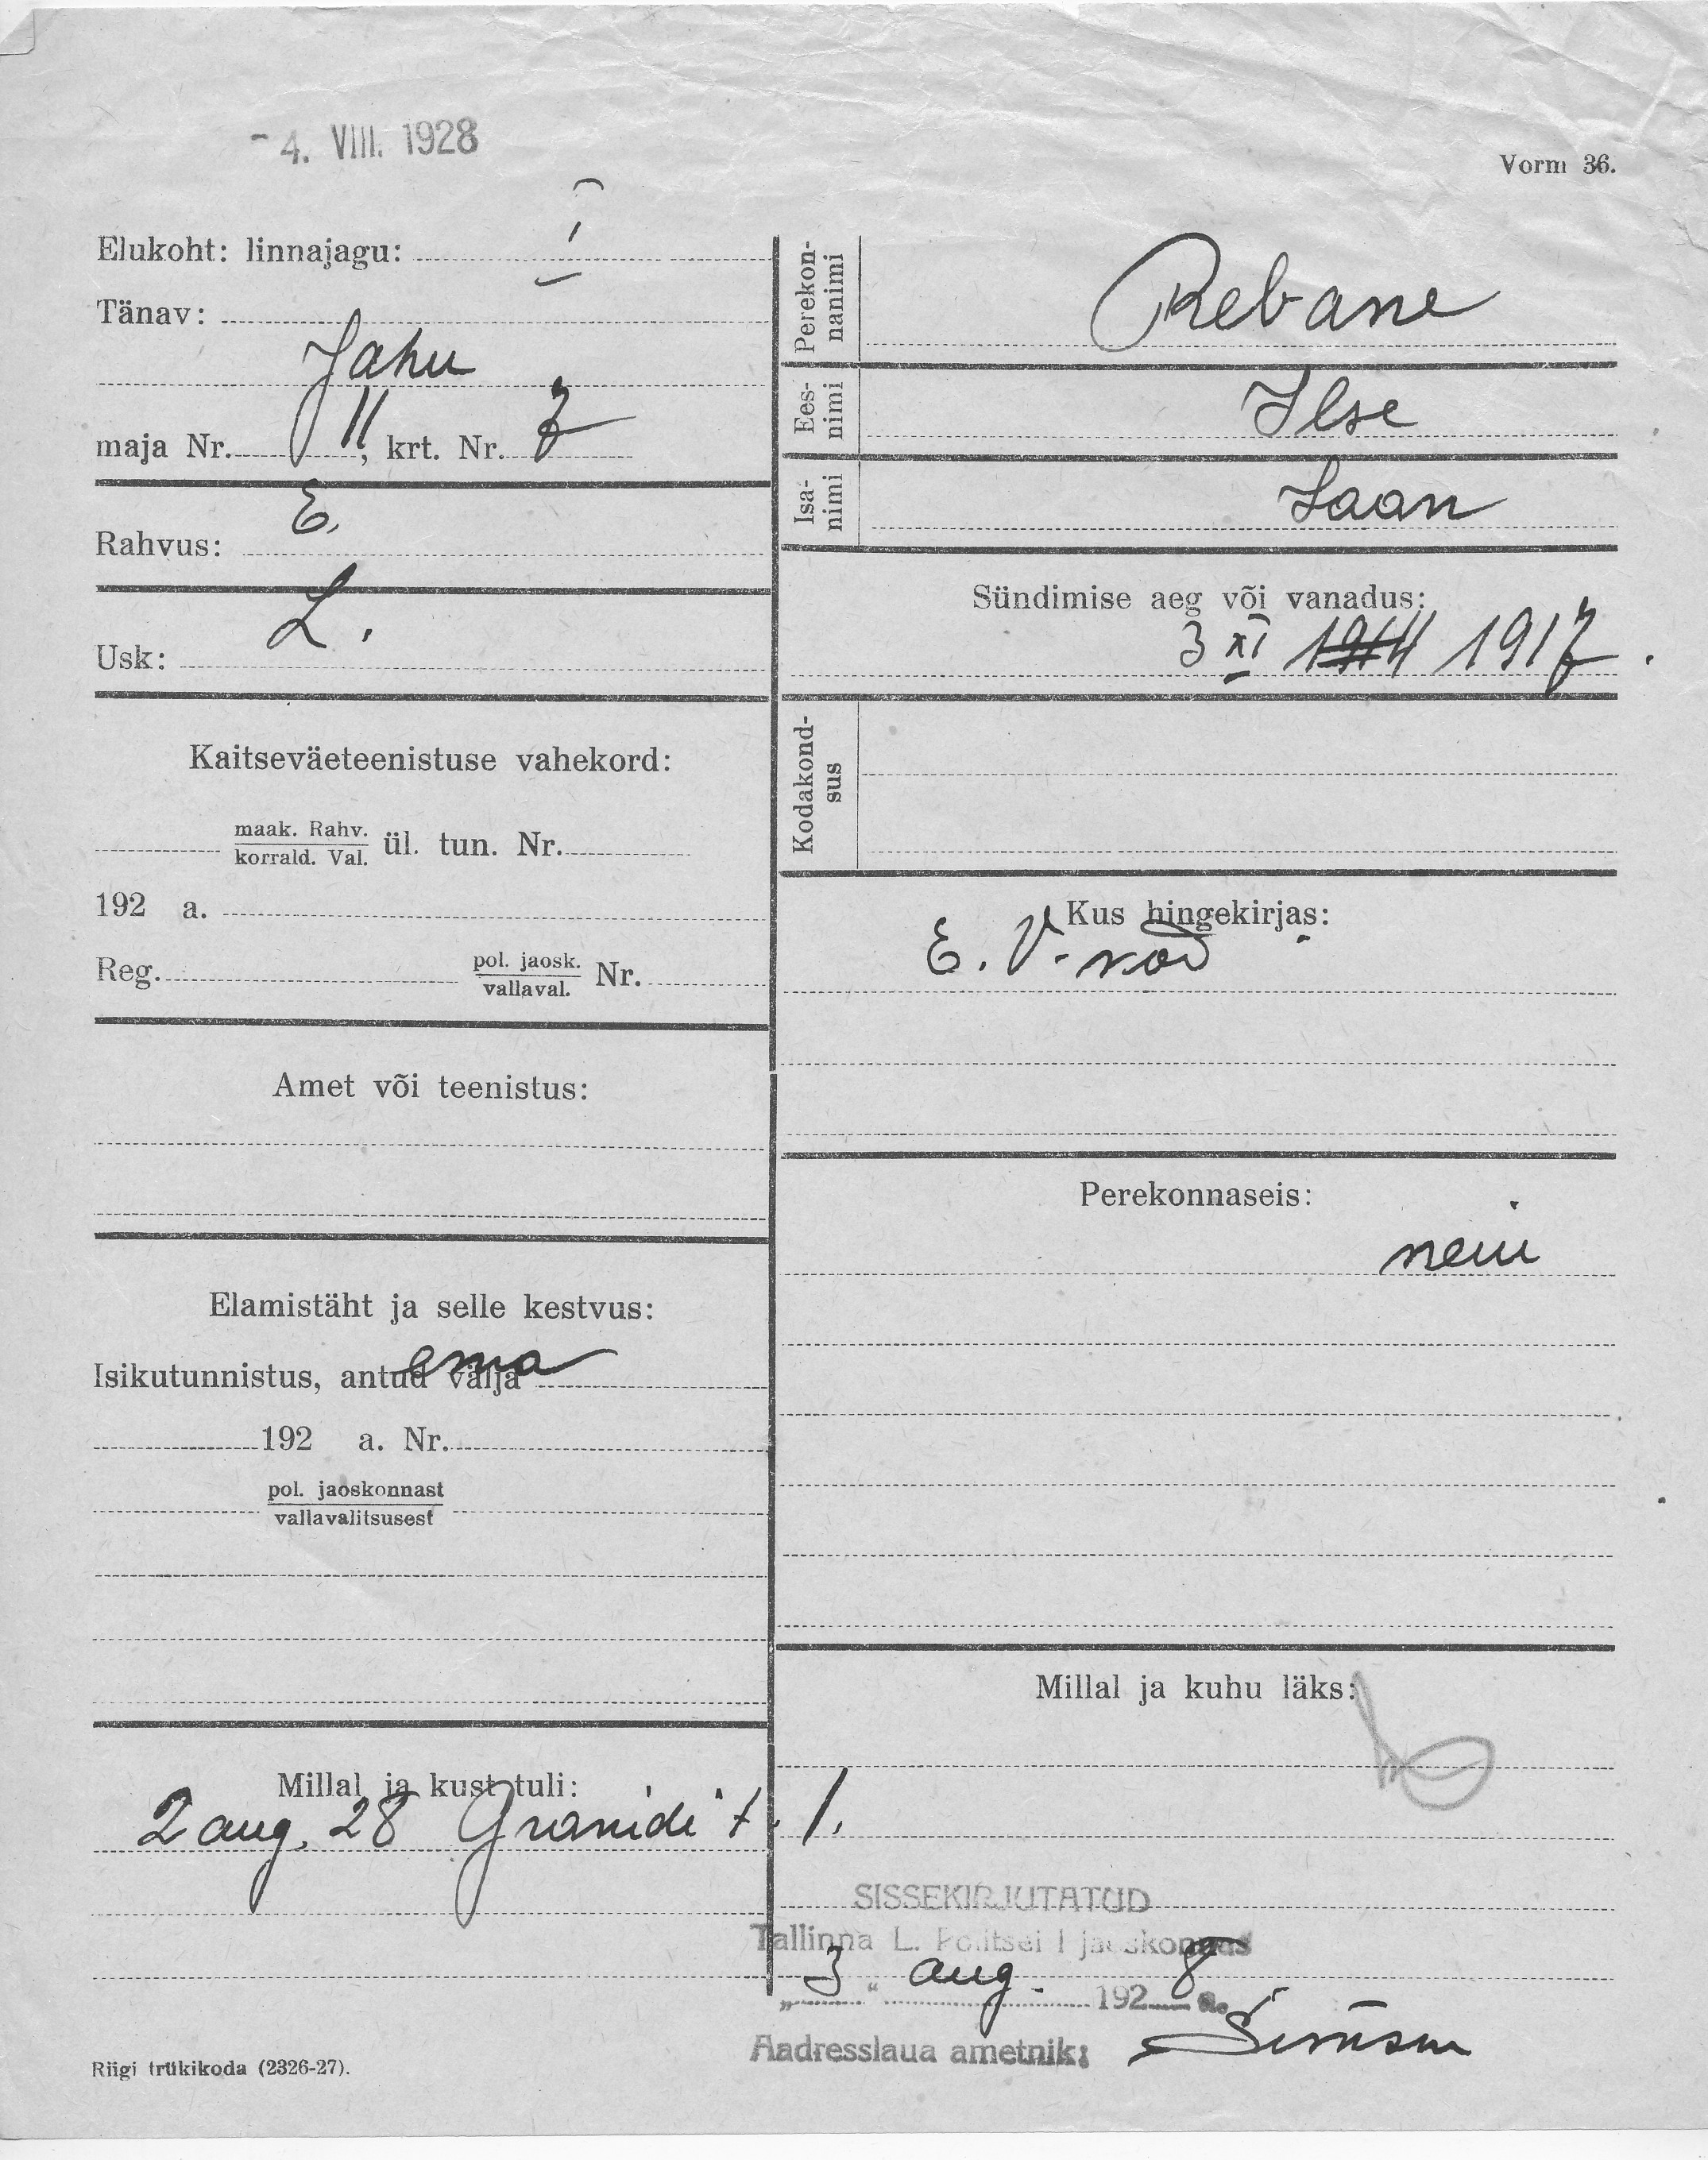 - 4. VIII. 1928
Vorm 36.
Elukoht: linnajagu: I
Tänav:
Jahu
maja Nr. 11, krt. Nr. 7
Rahvus: E.
Usk: L.
Kaitseväeteenistuse vahekord:
maak. Rahv.
korrald. Val. ül. tun. Nr.
192 a.
Reg. pol. jaosk.
vallaval. Nr.
Amet või teenistus:
Elamistäht ja selle kestvus:
Isikutunnistus, antud välja ema
192 a. Nr.
pol. jaoskonnast
vallavalitsusest
Millal ja kust tuli:
2 aug. 28 Graniidi t. 1.
Riigi trükikoda (2326-27).
Perekon-
nanimi
Rebane
Ees-
nimi
Ilse
Isa-
nimi
Jaan
Sündimise aeg või vanadus:
3 XI 1914 1917.
Kodakond-
sus
Kus hingekirjas:
E. V.
Perekonnaseis:
neiu
Millal ja kuhu läks:
SISSEKIRJUTATUD
Tallinna L. Politsei I jaoskonnas
„3“ aug. 1928 a.
Aadresslaua ametnik: